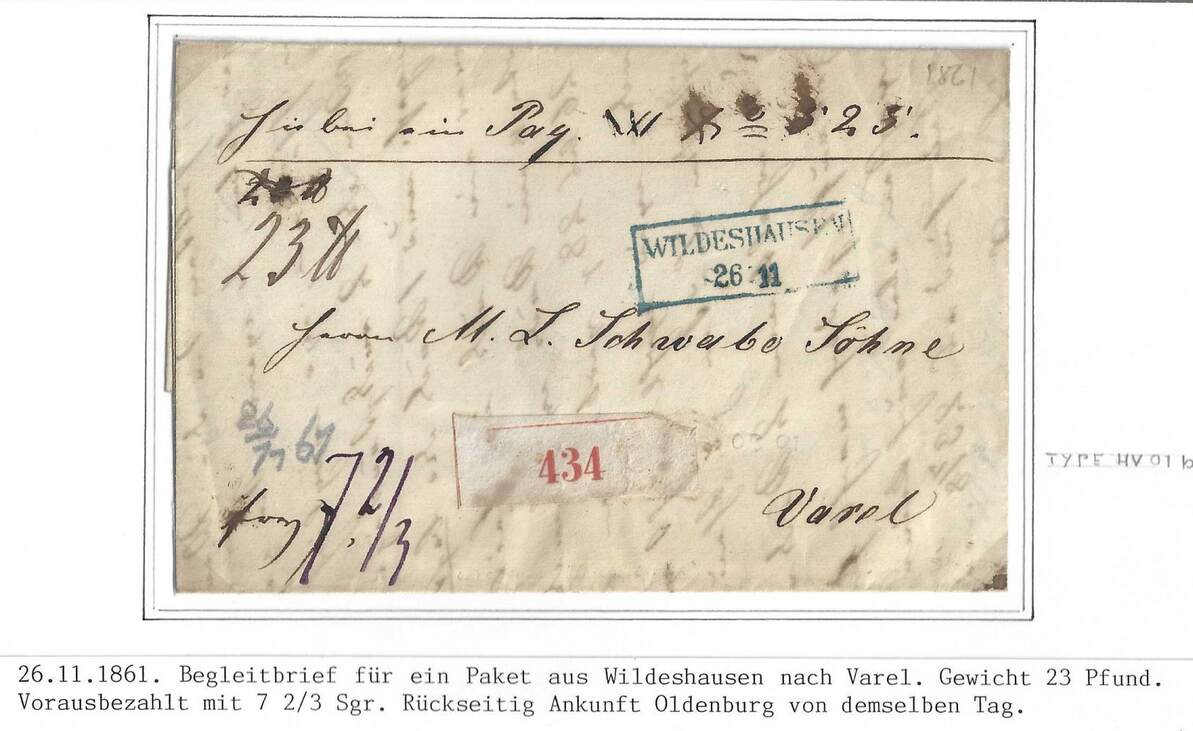 1861
Hiebei ein Paq.
23 ℔
WILDESHAUSEN
26 11
Herrn M. L. Schwabe Söhne
26/11 61
434
franco 7 2/3
Varel
TYPE HV 01 b
26.11.1861. Begleitbrief für ein Paket aus Wildeshausen nach Varel. Gewicht 23 Pfund.
Vorausbezahlt mit 7 2/3 Sgr. Rückseitig Ankunft Oldenburg von demselben Tag.